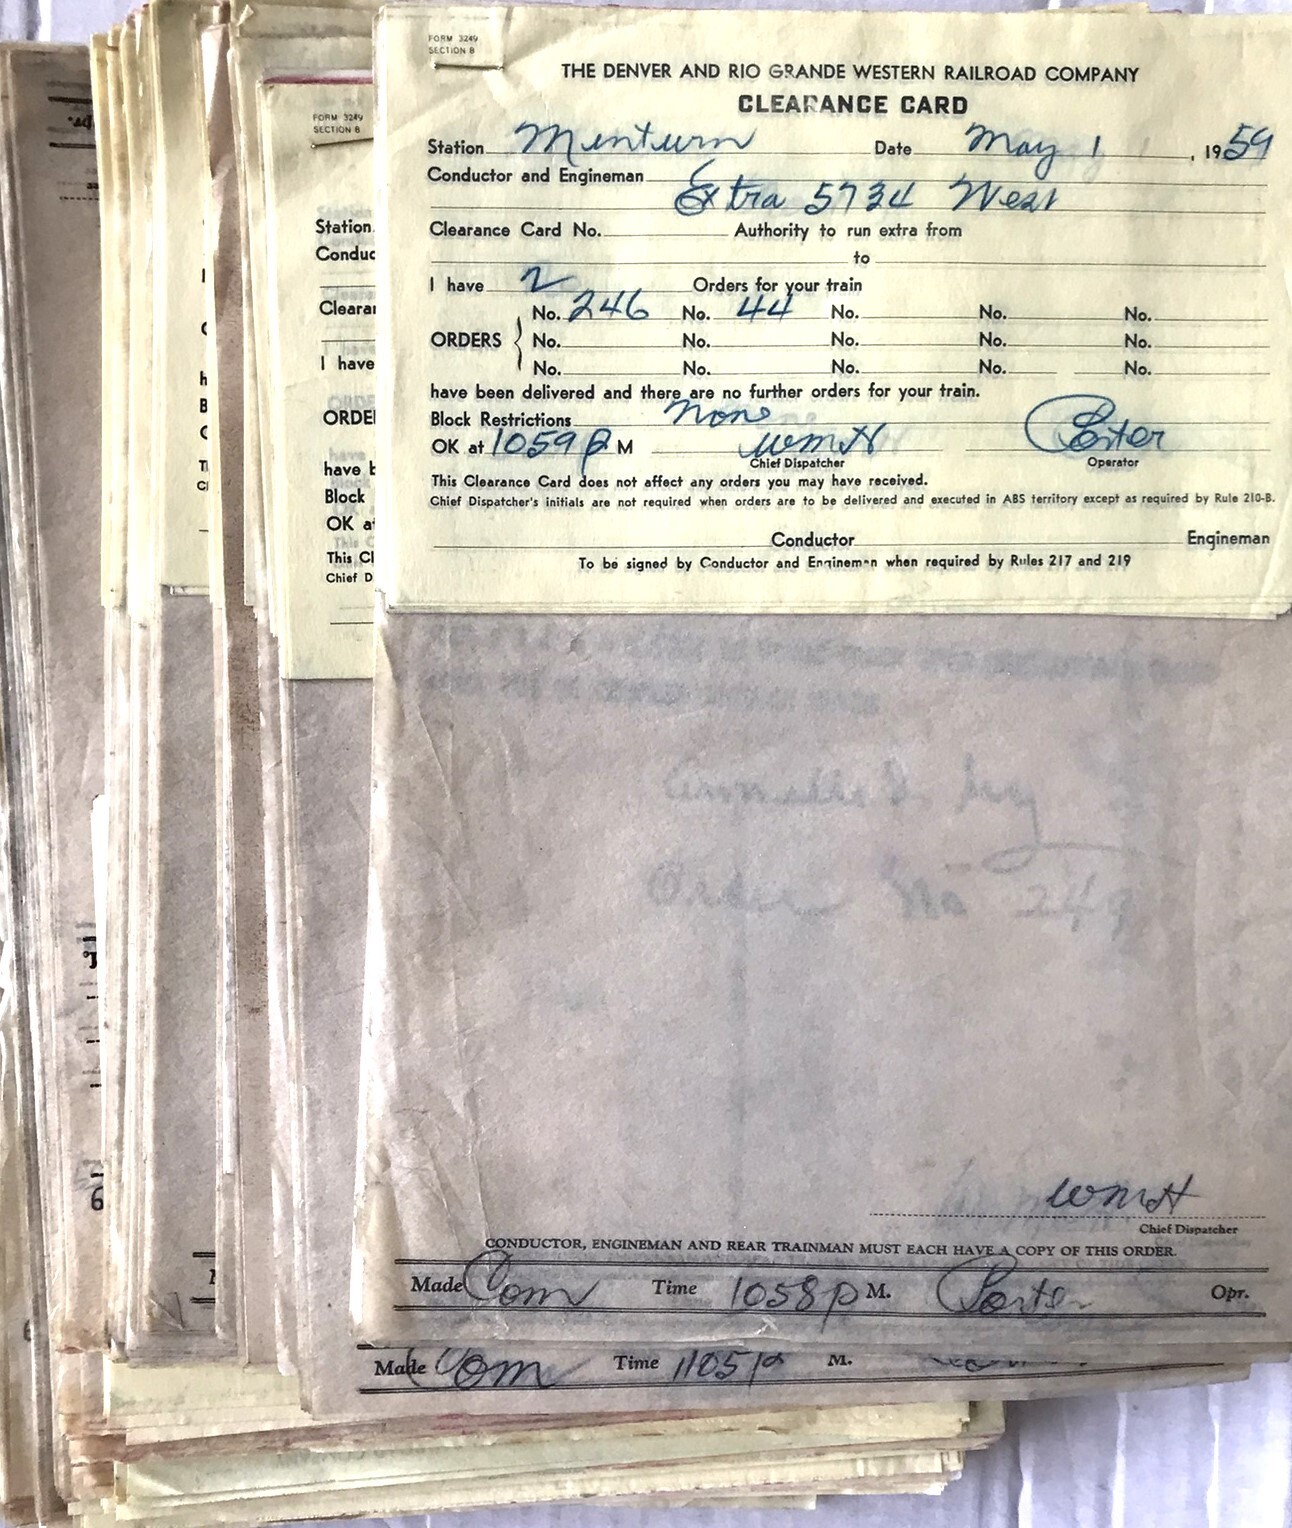 FORM 3249
SECTION B
THE DENVER AND RIO GRANDE WESTERN RAILROAD COMPANY
CLEARANCE CARD
Station Minturn Date May 1, 1959
Conductor and Engineman
Extra 5734 West
Clearance Card No. Authority to run extra from
to
I have 2 Orders for your train
No. 246 No. 44 No. No. No.
ORDERS No. No. No. No. No.
No. No. No. No. No.
have been delivered and there are no further orders for your train.
Block Restrictions None
OK at 1059 P M WMH Porter
Chief Dispatcher Operator
This Clearance Card does not affect any orders you may have received.
Chief Dispatcher's initials are not required when orders are to be delivered and executed in ABS territory except as required by Rule 210-B.
Conductor Engineman
To be signed by Conductor and Engineman when required by Rules 217 and 219
Order No 249
WMH
Chief Dispatcher
CONDUCTOR, ENGINEMAN AND REAR TRAINMAN MUST EACH HAVE A COPY OF THIS ORDER.
Made Com Time 1058 p M. Porter Opr.
Made Com Time 1105 p M.
FORM 3249
SECTION B
Station
Conduc
Clearan
I have
ORDE
have b
Block
OK at
This Cl
Chief D